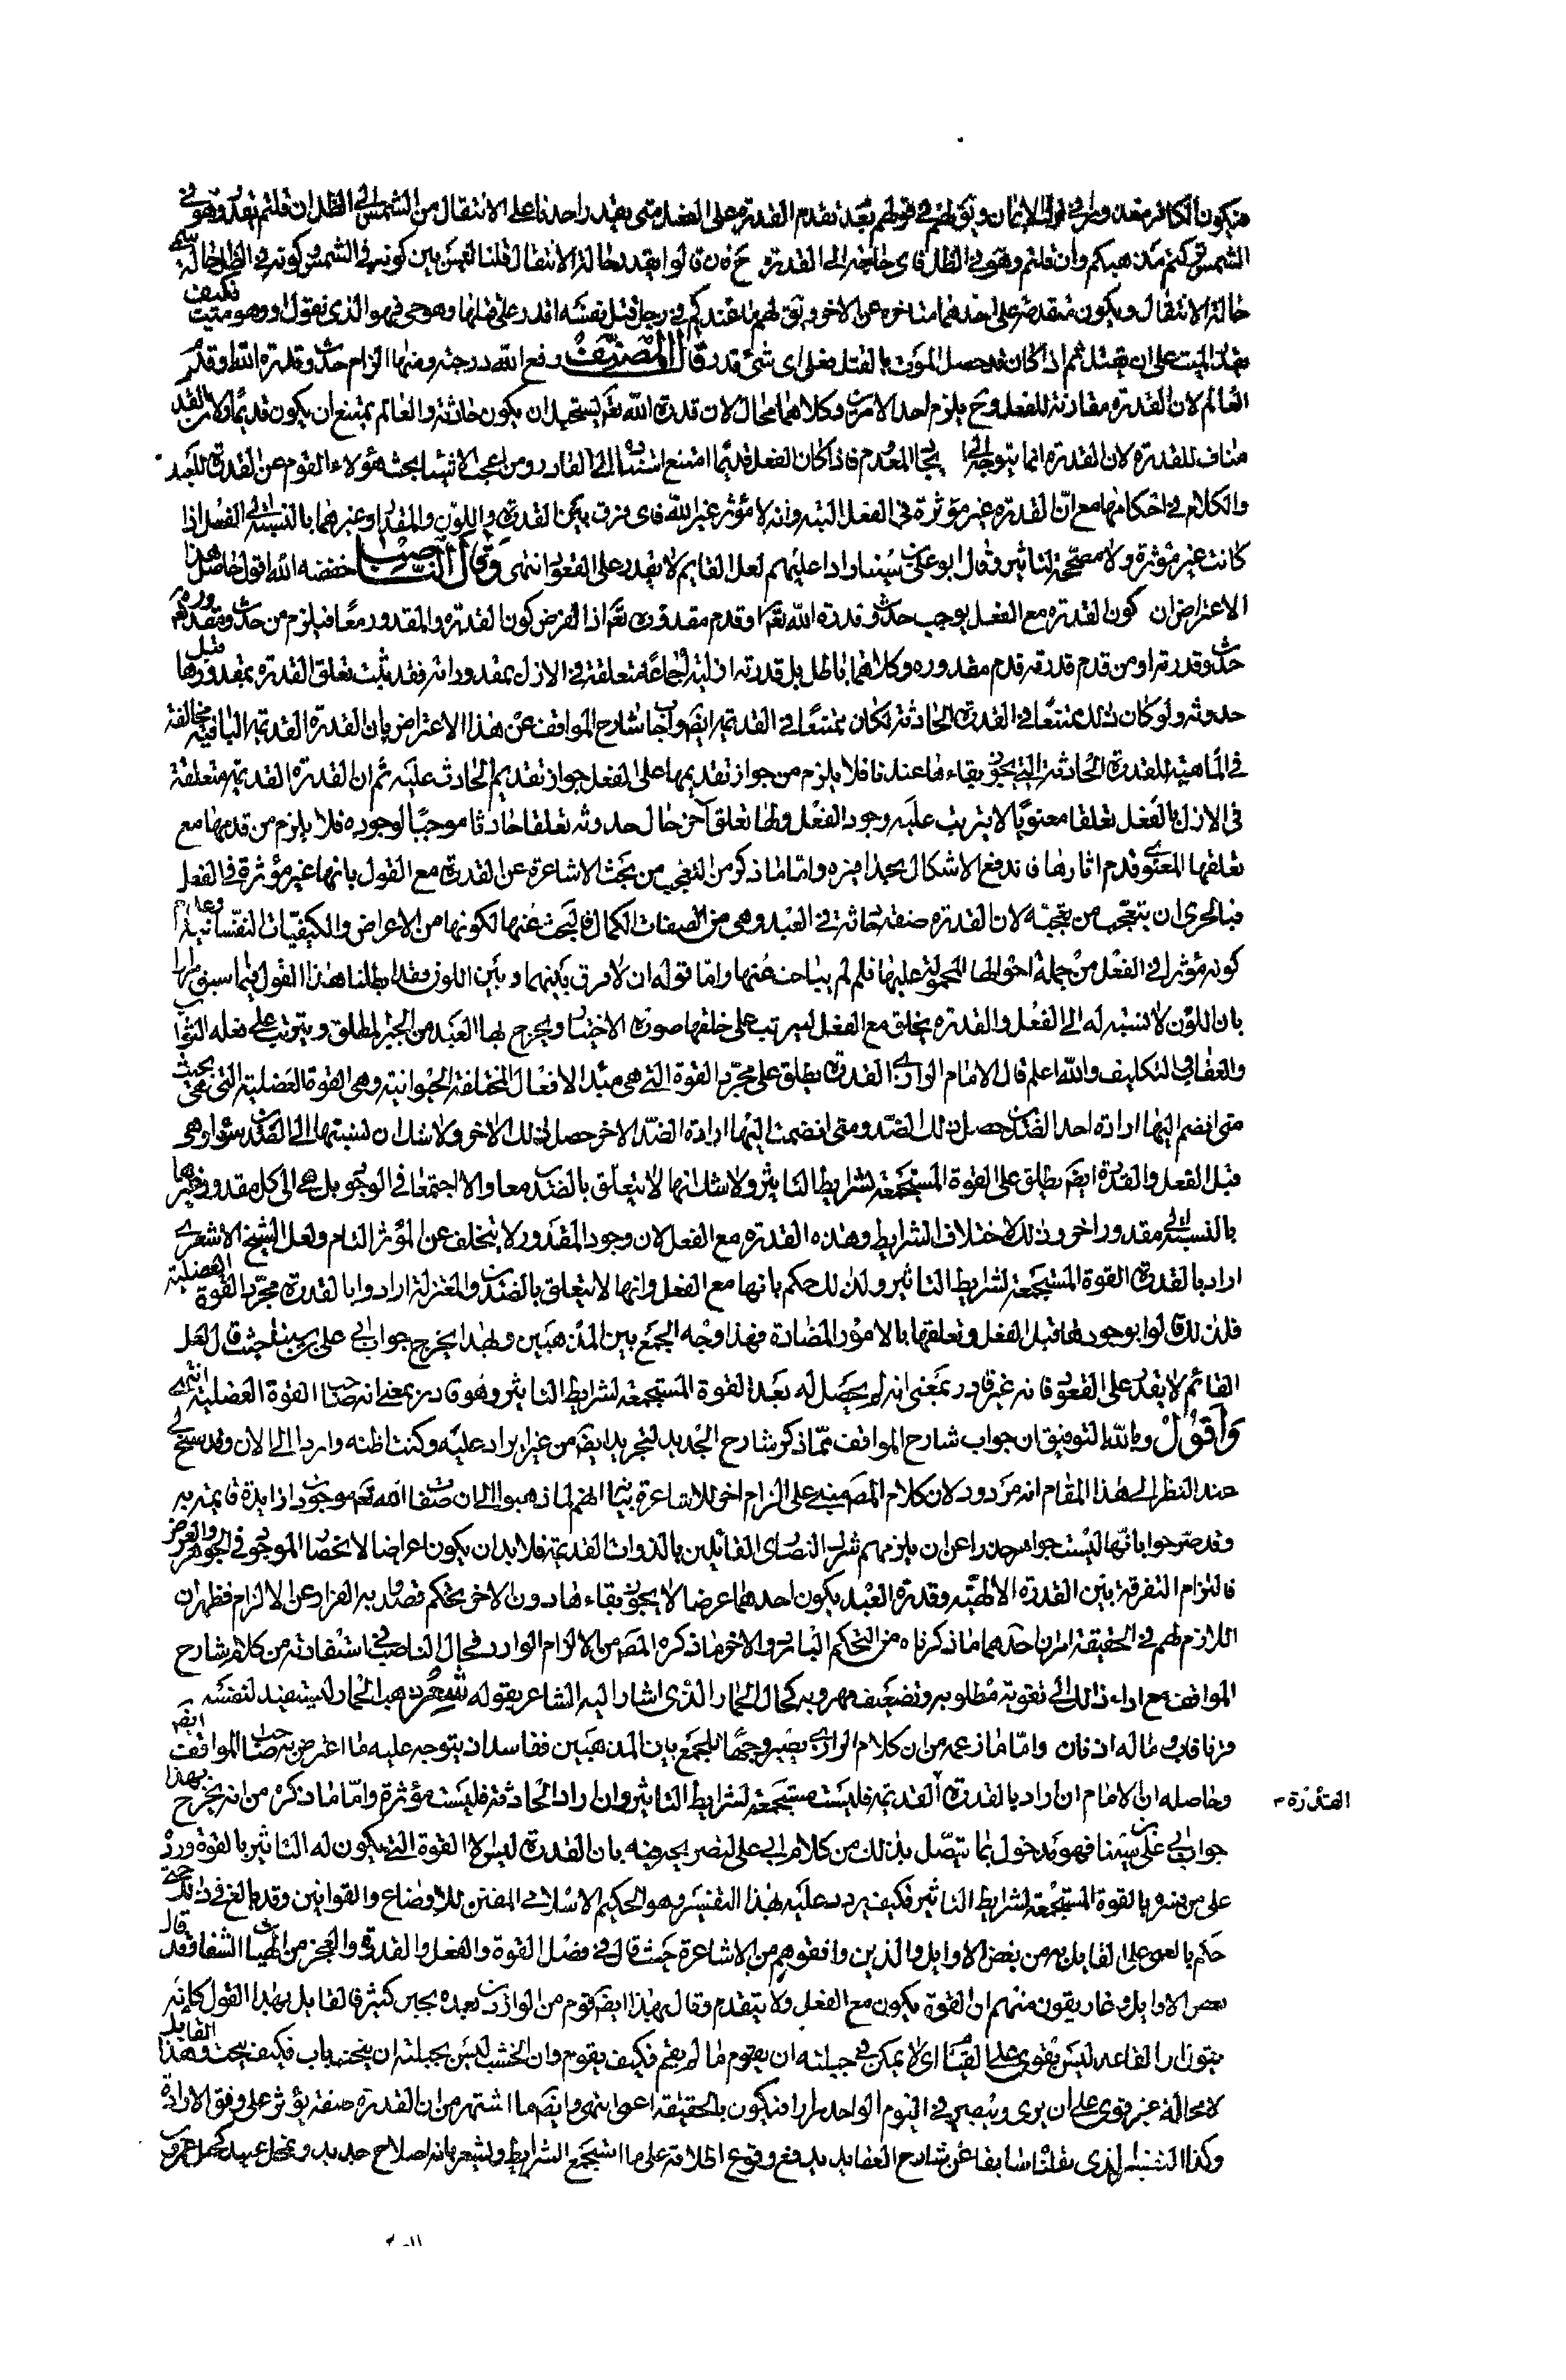 فيكون الكافر مقدورا في حال الايمان ويق لهم في قولهم بعدم تقدم القدرة على الفعل متى يقدر احدنا على الانتقال من الشمس الى الظل ان قلتم يقدر وهو في
الشمس تركتم مذهبكم وان قلتم وهو في الظل فاى حاجة الى القدرة ح فان قالوا يقدر حالة الانتقال قلنا ليس بين كونه في الشمس وكونه في الظل حالة يسمى
حالة الانتقال ويكون متقدمة على احدهما متاخرة عن الاخر ويق لهم ما عندكم في رجل قتل نفسه اقدر على قتلها وهو حى فهو الذى نقول او وهو ميت فكيف
يقدر الميت على ان يقتل ثم اذا كان قد حصل الموت بالقتل فعلى اى شئ قدر قال المصنف رفع الله درجته ومنها الزام حدوث قدرة الله او قدم
العالم لان القدرة مقارنة للفعل وح يلزم احد الامرين وكلاهما محال لان قدرة الله تعم يستحيل ان يكون حادثة والعالم يمتنع ان يكون قديما ولان القدم
مناف للقدرة لان القدرة انما يتوجه الى ايجاد المعدوم فاذا كان الفعل قديما امتنع استناده الى القادر ومن اعجب الاشياء بحث هؤلاء القوم عن القدرة للعبد
والكلام في احكامها مع ان القدرة غير مؤثرة في الفعل البتة وانه لا مؤثر غير الله فاى فرق بين القدرة واللون والمقدار وغيرهما بالنسبة الى الفعل اذا
كانت غير مؤثرة ولا مصححة لتاثير وقال ابو على بن سينا رادا عليهم لعل القايم لا يقدر على القعود انتهى وقال الناصب خفضه الله اقول حاصل هذا
الاعتراض ان كون القدرة مع الفعل يوجب حدوث قدرة الله تعم او قدم مقدوره تعم اذ الفرض كون القدرة والمقدور معا فيلزم من حدوث مقدوره
حدوث قدرته او من قدم قدرته قدم مقدوره وكلاهما باطل بل قدرته ازلية اجماعا متعلقة في الازل بمقدوراته فقد ثبت تعلق القدرة بمقدورها قبل
حدوثه ولو كان ذلك ممتنعا في القدرة الحادثة لكان ممتنعا في القديمة ايضا واجاب شارح المواقف عن هذا الاعتراض بان القدرة القديمة الباقية مخالفة
في الماهية للقدرة الحادثة التي لا يجوز بقاءها عندنا فلا يلزم من جواز تقديمها على الفعل جواز تقديم الحادثة عليه ثم ان القدرة القديمة متعلقة
في الازل بالفعل تعلقا معنويا لا يترتب عليه وجود الفعل ولها تعلق آخر حال حدوثه تعلقا حادثا موجبا لوجوده فلا يلزم من قدمها مع
تعلقها المعنوي قدم اثارها فاندفع الاشكال بحذافيره واما ما ذكر من التعجب من بحث الاشاعرة عن القدرة مع القول بانها غير مؤثرة في الفعل
فبالحرى ان يتعجب من تعجبه لان القدرة صفة حادثة في العبد وهى من صفات الكمال فالبحث عنها لكونها من الاعراض والكيفيات النفسانية وعدم
كونه مؤثرا في الفعل من جملة احوالها المحمولة عليها فلم لم يباحث عنها واما قوله ان لا فرق بينهما وبين اللون فقد ابطلنا هذا القول فيما سبق مرارا
بان اللون لا نسبة له الى الفعل والقدرة يخلق مع الفعل ليترتب على خلقها صورة الاختيار ويخرج بها العبد من الجبر المطلق ويترتب على فعله الثواب
والعقاب والتكليف والله اعلم قال الامام الرازى القدرة يطلق على مجرد القوة التى هى مبدأ الافعال المختلفة الحيوانية وهى القوة العضلية التى هى بحيث
متى انضم اليها ارادة احد الضدين حصل ذلك الضد ومتى انضمت اليها ارادة الضد الاخر حصل ذلك الاخر ولا شك ان نسبتها الى الضدين سواء وهى
قبل الفعل والقدرة ايضا يطلق على القوة المستجمعة لشرايط التاثير ولا شك انها لا يتعلق بالضدين معا والا اجتمعا في الوجود بل هى الى كل مقدور غيرها
بالنسبة الى مقدور اخر وذلك لاختلاف الشرايط وهذه القدرة مع الفعل لان وجود المقدور لا يتخلف عن المؤثر التام ولعل الشيخ الاشعرى
اراد بالقدرة القوة المستجمعة لشرايط التاثير ولذلك حكم بانها مع الفعل وانها لا يتعلق بالضدين والمعتزلة ارادوا بالقدرة مجرد القوة العضلية
فلذلك قالوا بوجودها قبل الفعل وتعلقها بالامور المضادة فهذا وجه الجمع بين المذهبين وبهذا يخرج جواب ابى على بن سينا حيث قال لعل
القائم لا يقدر على القعود فانه غير قادر بمعنى انه لم يحصل له بعد القوة المستجمعة لشرايط التاثير وهو قادر بمعنى انه صاحب القوة العضلية انتهى
وأقول وبالله التوفيق ان جواب شارح المواقف مما ذكر شارح الجديد لتجريد ايضا من غير ايراد عليه وكنت اظنه واردا الى الان وقد سنح لى
عند النظر الى هذا المقام انه مردود لان كلام المصم مبنى على الزام اخر للاشاعرة بينا انهم لما ذهبوا الى ان صفات الله تعم موجودات زايدة قايمة به
وقد صرحوا بانها ليست جواهر حذرا عن ان يلزمهم شرك النصارى القائلين بالذوات القديمة فلا بد ان يكون اعراضا لانحصار الموجود في الجوهر والعرض
فالتزام التفرقة بين القدرة الالهية وقدرة العبد يكون احدهما عرضا لا يجوز بقاءها دون الاخر تحكم قصد به الفرار عن الالزام فظهر ان
اللازم لهم في الحقيقة امران احدهما ما ذكرناه من التحكم البارد والاخر ما ذكره المصم من الالزام الوارد فحال الناصب في استفادته من كلام شارح
المواقف مع اداء ذلك الى تقوية مطلوبه وتضعيف مهروبه كحال الحمار الذى اشار اليه الشاعر بقوله شعر ذهب الحمار ليستفيد لنفسه
قرنا فاب وما له اذنان واما ما زعمه من ان كلام الرازى يصير وجها للجمع بين المذهبين ففاسد اذ يتوجه عليه ما اعترض به صاحب المواقف ايضا
وحاصله ان الامام ان اراد بالقدرة القديمة فليست مستجمعة لشرايط التاثير وان اراد الحادثة فليست مؤثرة واما ما ذكره من انه يخرج بهذا
جواب ابى على بن سينا فهو مدخول بما تيصل بذلك من كلام ابى على لتصريحه فيه بان القدرة ليس الا القوة التى يكون له التاثير بالقوة ورد
على من فسره بالقوة المستجمعة لشرايط التاثير فكيف يردد عليه بهذا التفسير وهو الحكيم الاسلامى المفنن للاوضاع والقوانين وقد بالغ في ذلك حتى
حكم بالعمى على القايل به من بعض الاوايل والذين وافقوهم من الاشاعرة حيث قال في فصل القوة والفعل والقدرة والعجز من الهيات الشفا وقد قال
بعض الاوايل وغاريقون منهم ان القوة يكون مع الفعل ولا يتقدم وقال بهذا ايضا قوم من الواردين بعده بحين كثير فالقايل بهذا القول كانه
يقول ان القاعد ليس يقوى على القيام اى لا يمكن في جبلته ان يقوم ما لم يقم فكيف يقوم وان الخشب ليس بجبلته ان ينحت باب فكيف ينحت وهذا القايل
لا محالة غير قوى على ان يرى ويبصر في اليوم الواحد مرارا فيكون بالحقيقة اعمى انتهى وايضا ما اشتهر من ان القدرة صفة يؤثر على وفق الارادة
وكذا التفسير الذى نقلنا سابقا عن شارح العقايد يدفع وقوع اطلاقه على ما استجمع الشرايط ويشعر بانه اصلاح جديد